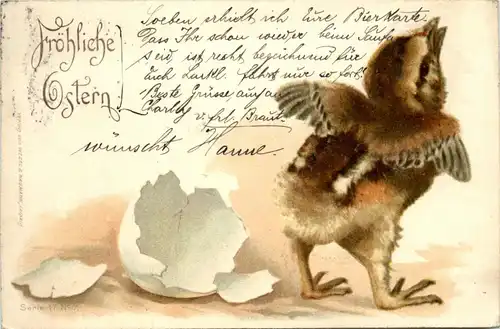 Fröhliche
Ostern!
Soeben erhielt ich Eure Bierkarte.
Dass Ihr schon wieder beim Saufen
seid ist recht bezeichnend für
Euch fahrt nur so fort!
Beste Grüsse auf an
Braut.
wünscht Hanne.
Serie